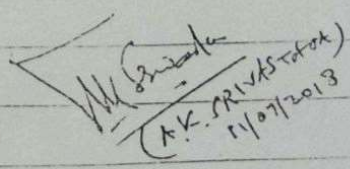 (A.K. SRIVASTAVA)
11/07/2013